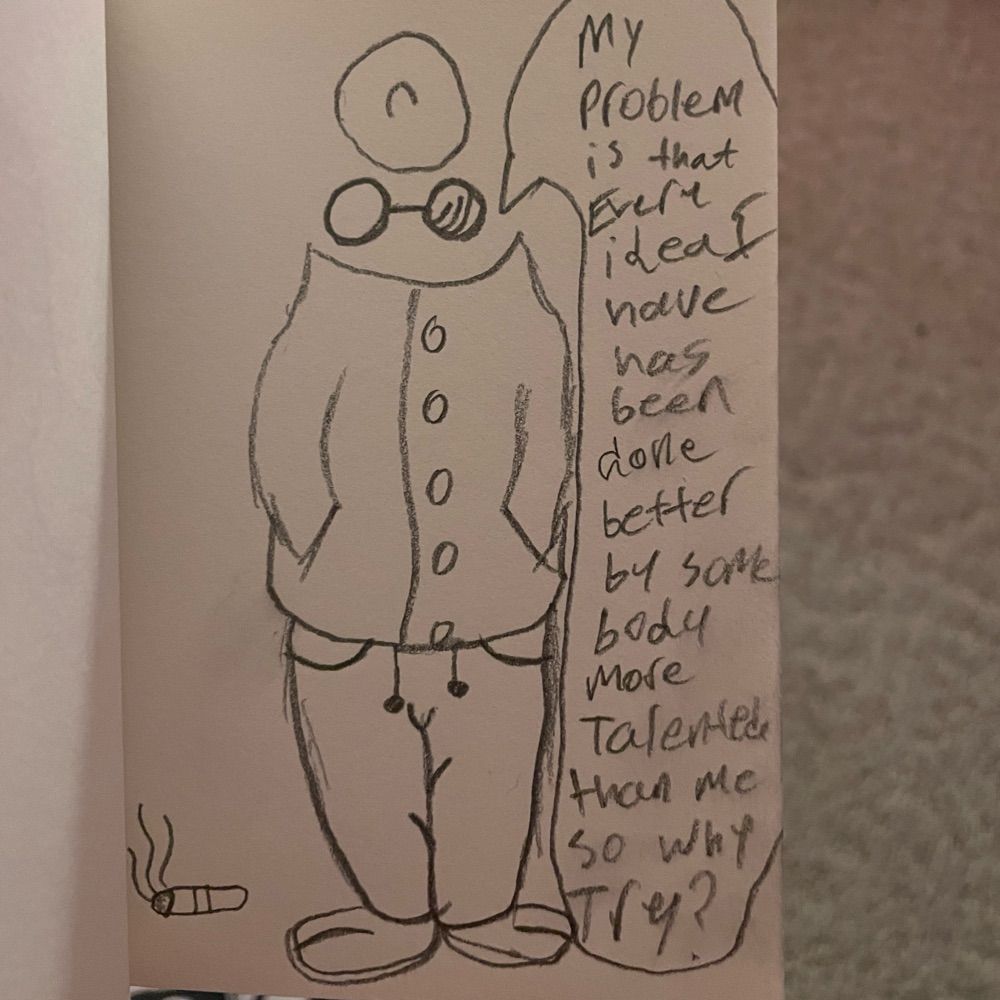 My
Problem
is that
Every
idea I
have
has
been
done
better
by some
body
More
Talented
than me
so why
Try?